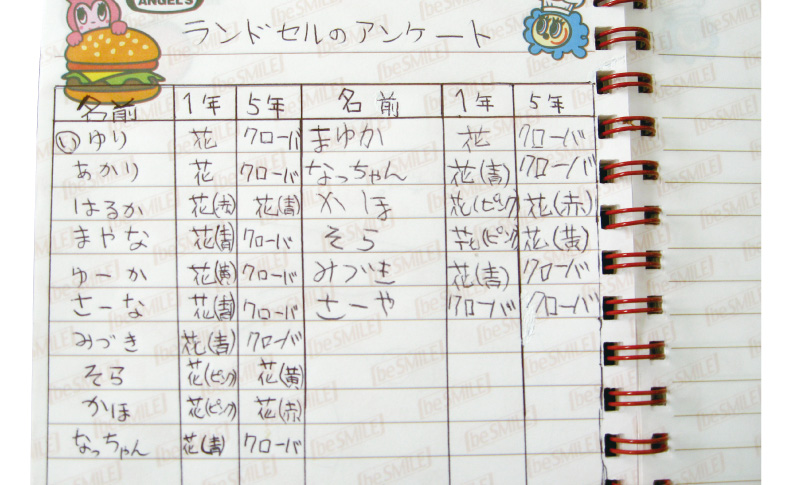 ANGEL'S
ランドセルのアンケート
名前 1年 5年 名前 1年 5年
(い)ゆり 花 クローバ まゆか 花 クローバ
あかり 花 クローバ なっちゃん 花(青) クローバ
はるか 花(赤) 花(青) かほ 花(ピンク) 花(赤)
まやな 花(青) クローバ そら 花(ピンク) 花(黄)
ゆーか 花(黄) クローバ みづき 花(青) クローバ
さーな 花(青) クローバ さーや クローバ クローバ
みづき 花(青) クローバ
そら 花(ピンク) 花(黄)
かほ 花(ピンク) 花(赤)
なっちゃん 花(青) クローバ
[be SMILE]